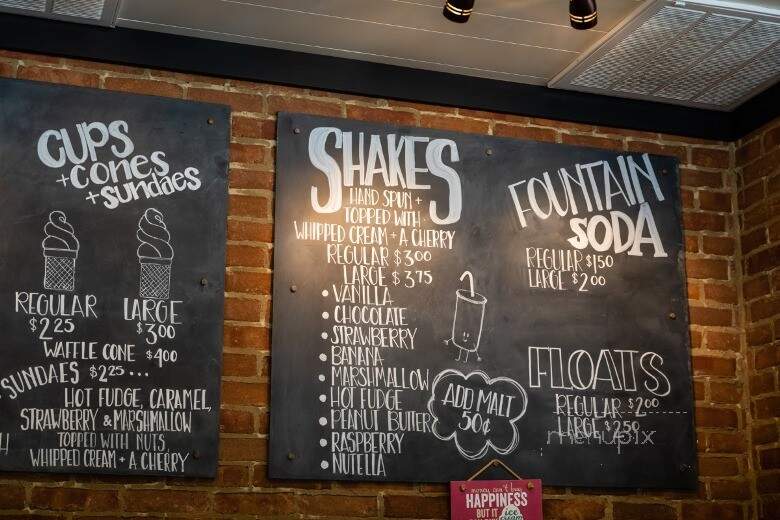 CUPS
+CONES
+SUNDAES
REGULAR
$2.25
LARGE
$3.00
WAFFLE CONE $4.00
SUNDAES $2.25...
HOT FUDGE, CARAMEL,
STRAWBERRY & MARSHMALLOW
TOPPED WITH NUTS
WHIPPED CREAM + A CHERRY
SHAKES
HAND SPUN +
TOPPED WITH
WHIPPED CREAM + A CHERRY
REGULAR $3.00
LARGE $3.75
• VANILLA
• CHOCOLATE
• STRAWBERRY
• BANANA
• MARSHMALLOW
• HOT FUDGE
• PEANUT BUTTER
• RASPBERRY
• NUTELLA
ADD MALT
50¢
FOUNTAIN
SODA
REGULAR $1.50
LARGE $2.00
FLOATS
REGULAR $2.00
LARGE $2.50
menupix
money can't buy
HAPPINESS
BUT IT
ice
cream